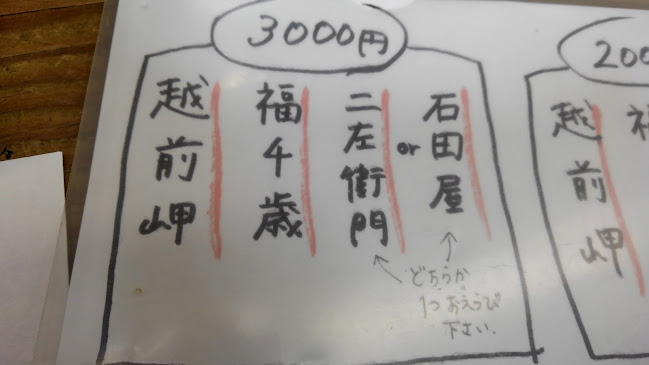 3000円
石田屋
or
二左衛門
福千歳
越前岬
どちらか
1つおえらび
下さい.
200
越前岬